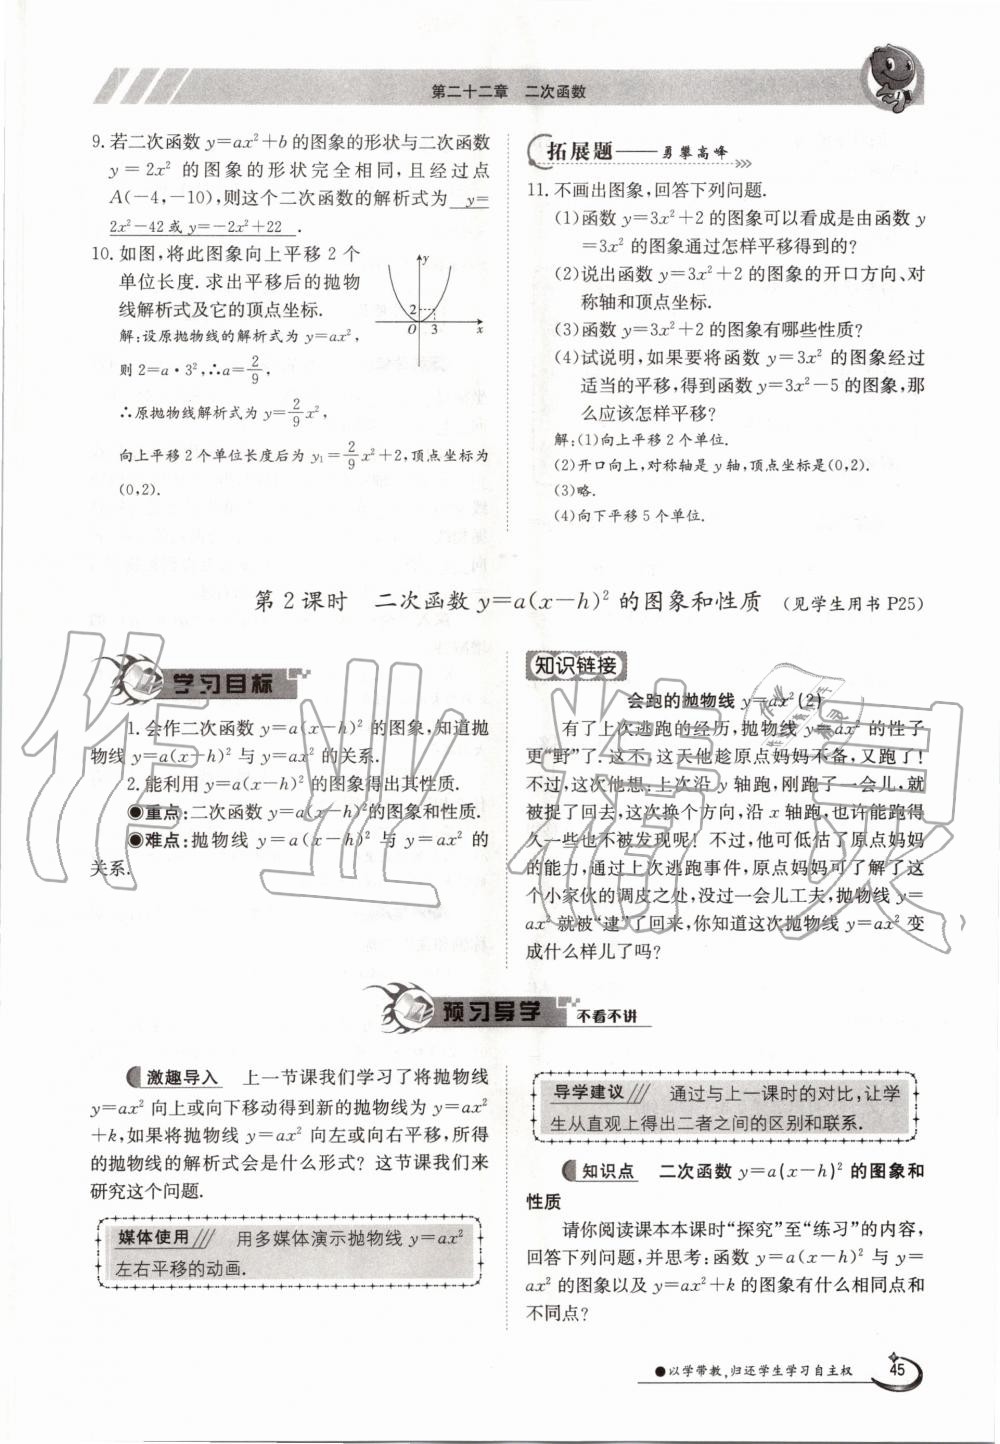 第二十二章 二次函数
9. 若二次函数 y=ax²+b 的图象的形状与二次函数
y=2x² 的图象的形状完全相同,且经过点
A(-4,-10),则这个二次函数的解析式为 y=
2x²-42 或 y=-2x²+22 .
10. 如图,将此图象向上平移 2 个
单位长度. 求出平移后的抛物
线解析式及它的顶点坐标.
解:设原抛物线的解析式为 y=ax²,
则 2=a·3²,∴a=2/9,
∴原抛物线解析式为 y=2/9x²,
向上平移 2 个单位长度后为 y₁=2/9x²+2,顶点坐标为
(0,2).
y
2
O 3 x
拓展题——勇攀高峰
11. 不画出图象,回答下列问题.
(1)函数 y=3x²+2 的图象可以看成是由函数 y
=3x² 的图象通过怎样平移得到的?
(2)说出函数 y=3x²+2 的图象的开口方向、对
称轴和顶点坐标.
(3)函数 y=3x²+2 的图象有哪些性质?
(4)试说明,如果要将函数 y=3x² 的图象经过
适当的平移,得到函数 y=3x²-5 的图象,那
么应该怎样平移?
解:(1)向上平移 2 个单位.
(2)开口向上,对称轴是 y 轴,顶点坐标是(0,2).
(3)略.
(4)向下平移 5 个单位.
第 2 课时 二次函数 y=a(x-h)² 的图象和性质 (见学生用书 P25)
学习目标
1. 会作二次函数 y=a(x-h)² 的图象,知道抛
物线 y=a(x-h)² 与 y=ax² 的关系.
2. 能利用 y=a(x-h)² 的图象得出其性质.
●重点:二次函数 y=a(x-h)²的图象和性质.
●难点:抛物线 y=a(x-h)² 与 y=ax² 的
关系.
知识链接
会跑的抛物线 y=ax²(2)
有了上次逃跑的经历,抛物线 y=ax² 的性子
更“野”了. 这不,这天他趁原点妈妈不备,又跑了!
不过,这次他想:上次沿 y 轴跑,刚跑了一会儿,就
被捉了回去,这次换个方向,沿 x 轴跑,也许能跑得
久一些也不被发现呢! 不过,他可低估了原点妈妈
的能力,通过上次逃跑事件,原点妈妈可了解了这
个小家伙的调皮之处,没过一会儿工夫,抛物线 y=
ax² 就被“逮”了回来,你知道这次抛物线 y=ax² 变
成什么样儿了吗?
预习导学 不看不讲
激趣导入 上一节课我们学习了将抛物线
y=ax² 向上或向下移动得到新的抛物线为 y=ax²
+k,如果将抛物线 y=ax² 向左或向右平移,所得
的抛物线的解析式会是什么形式? 这节课我们来
研究这个问题.
媒体使用 用多媒体演示抛物线 y=ax²
左右平移的动画.
导学建议 通过与上一课时的对比,让学
生从直观上得出二者之间的区别和联系.
知识点 二次函数 y=a(x-h)² 的图象和
性质
请你阅读课本本课时“探究”至“练习”的内容,
回答下列问题,并思考:函数 y=a(x-h)² 与 y=
ax² 的图象以及 y=ax²+k 的图象有什么相同点和
不同点?
●以学带教,归还学生学习自主权 45
作业精灵